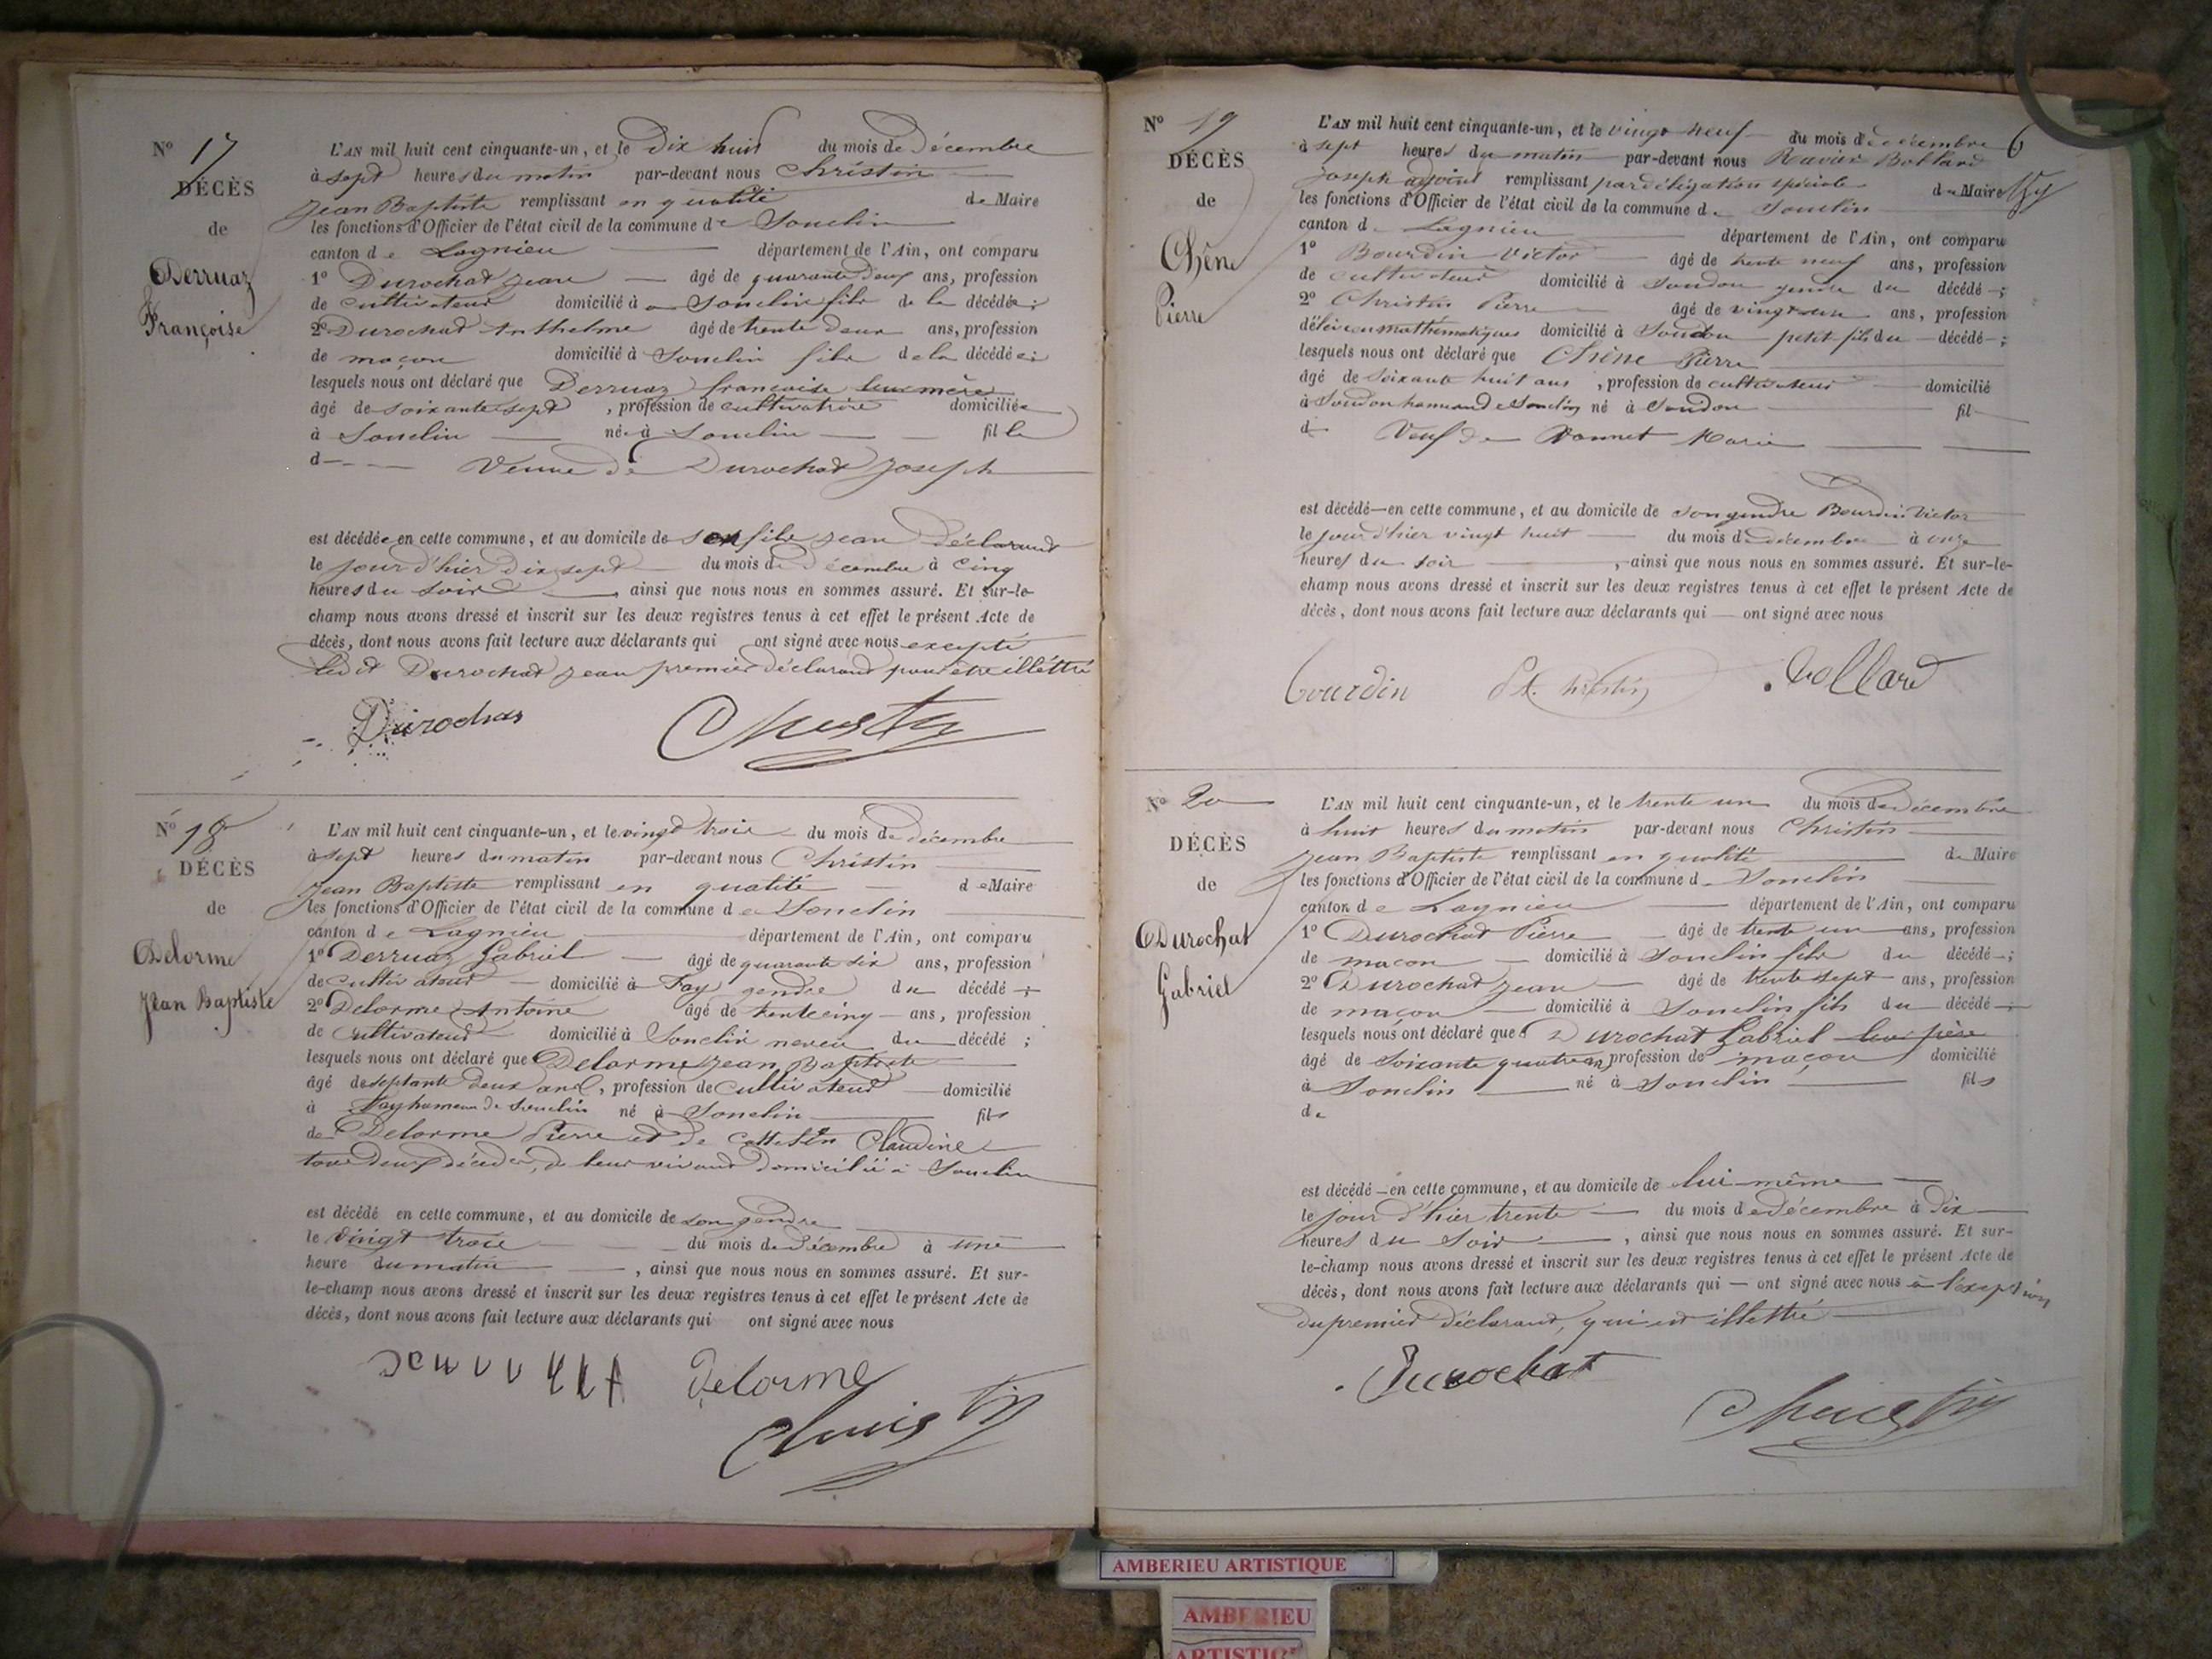 N° 17
DÉCÈS
de
Derruaz
Françoise
L'AN mil huit cent cinquante-un, et le Dix huit du mois de Décembre
à sept heures du matin par-devant nous Christin
Jean Baptiste remplissant en qualité de Maire
les fonctions d'Officier de l'état civil de la commune de Souclin
canton de Lagnieu département de l'Ain, ont comparu
1° Durochat Jean âgé de quarante deux ans, profession
de cultivateur domicilié à Souclin fils de la décédée;
2° Durochat Anthelme âgé de trente deux ans, profession
de maçon domicilié à Souclin fils de la décédée;
lesquels nous ont déclaré que Derruaz françoise leur mère
âgé de soixante sept, profession de cultivatrice domiciliée
à Souclin née à Souclin fille
d Veuve de Durochat Joseph
est décédée en cette commune, et au domicile de son fils Jean Déclarant
le jour d'hier Dix sept du mois de Décembre à cinq
heures du soir ainsi que nous nous en sommes assuré. Et sur-le-
champ nous avons dressé et inscrit sur les deux registres tenus à cet effet le présent Acte de
décès, dont nous avons fait lecture aux déclarants qui ont signé avec nous excepté
ledit Durochat Jean premier déclarant pour être illéttré
Durochat Christin
N° 18
DÉCÈS
de
Delorme
Jean Baptiste
L'AN mil huit cent cinquante-un, et le vingt trois du mois de Décembre
à sept heures du matin par-devant nous Christin
Jean Baptiste remplissant en qualité de Maire
les fonctions d'Officier de l'état civil de la commune de Souclin
canton de Lagnieu département de l'Ain, ont comparu
1° Derruaz Gabriel âgé de quarante six ans, profession
de cultivateur domicilié à Fay gendre du décédé;
2° Delorme Antoine âgé de trente cinq ans, profession
de cultivateur domicilié à Souclin neveu du décédé;
lesquels nous ont déclaré que Delorme Jean Baptiste
âgé de septante deux ans, profession de cultivateur domicilié
à Fay hameau de Souclin né à Souclin fils
de Delorme Pierre et de Claudine
tous deux décédés, de leur vivant domiciliés à Souclin
est décédé en cette commune, et au domicile de son gendre
le vingt trois du mois de Décembre à une
heure du matin, ainsi que nous nous en sommes assuré. Et sur-
le-champ nous avons dressé et inscrit sur les deux registres tenus à cet effet le présent Acte de
décès, dont nous avons fait lecture aux déclarants qui ont signé avec nous
Delorme
Christin
N° 19
DÉCÈS
de
Chêne
Pierre
L'AN mil huit cent cinquante-un, et le vingt neuf du mois de décembre 6
à sept heures du matin par-devant nous Ravier Bollard
Joseph adjoint remplissant par délégation spéciale du Maire
les fonctions d'Officier de l'état civil de la commune de Souclin
canton de Lagnieu département de l'Ain, ont comparu
1° Bourdin Victor âgé de trente neuf ans, profession
de cultivateur domicilié à Soudon gendre du décédé;
2° Christin Pierre âgé de vingt un ans, profession
d'élève en mathématiques domicilié à Soudon petit fils du décédé;
lesquels nous ont déclaré que Chêne Pierre
âgé de soixante huit ans, profession de cultivateur domicilié
à Soudon hameau de Souclin né à Soudon fil
d Veuf de Marie
est décédé en cette commune, et au domicile de son gendre Bourdin Victor
le jour d'hier vingt huit du mois de décembre à onze
heures du soir, ainsi que nous nous en sommes assuré. Et sur-le-
champ nous avons dressé et inscrit sur les deux registres tenus à cet effet le présent Acte de
décès, dont nous avons fait lecture aux déclarants qui ont signé avec nous
bourdin Christin bollard
N° 20
DÉCÈS
de
Durochat
Gabriel
L'AN mil huit cent cinquante-un, et le trente un du mois de Décembre
à huit heures du matin par-devant nous Christin
Jean Baptiste remplissant en qualité de Maire
les fonctions d'Officier de l'état civil de la commune de Souclin
canton de Lagnieu département de l'Ain, ont comparu
1° Durochat Pierre âgé de trente un ans, profession
de maçon domicilié à Souclin fils du décédé;
2° Durochat Jean âgé de trente sept ans, profession
de maçon domicilié à Souclin fils du décédé;
lesquels nous ont déclaré que Durochat Gabriel leur père
âgé de soixante quatre ans, profession de maçon domicilié
à Souclin né à Souclin fils
de
est décédé en cette commune, et au domicile de lui-même
le jour d'hier trente du mois de Décembre à Dix
heures du soir, ainsi que nous nous en sommes assuré. Et sur-
le-champ nous avons dressé et inscrit sur les deux registres tenus à cet effet le présent Acte de
décès, dont nous avons fait lecture aux déclarants qui ont signé avec nous à l'exeption
du premier Déclarant, qui est illettré
Durochat
Christin
AMBERIEU ARTISTIQUE
AMBERIEU
ARTISTIQ